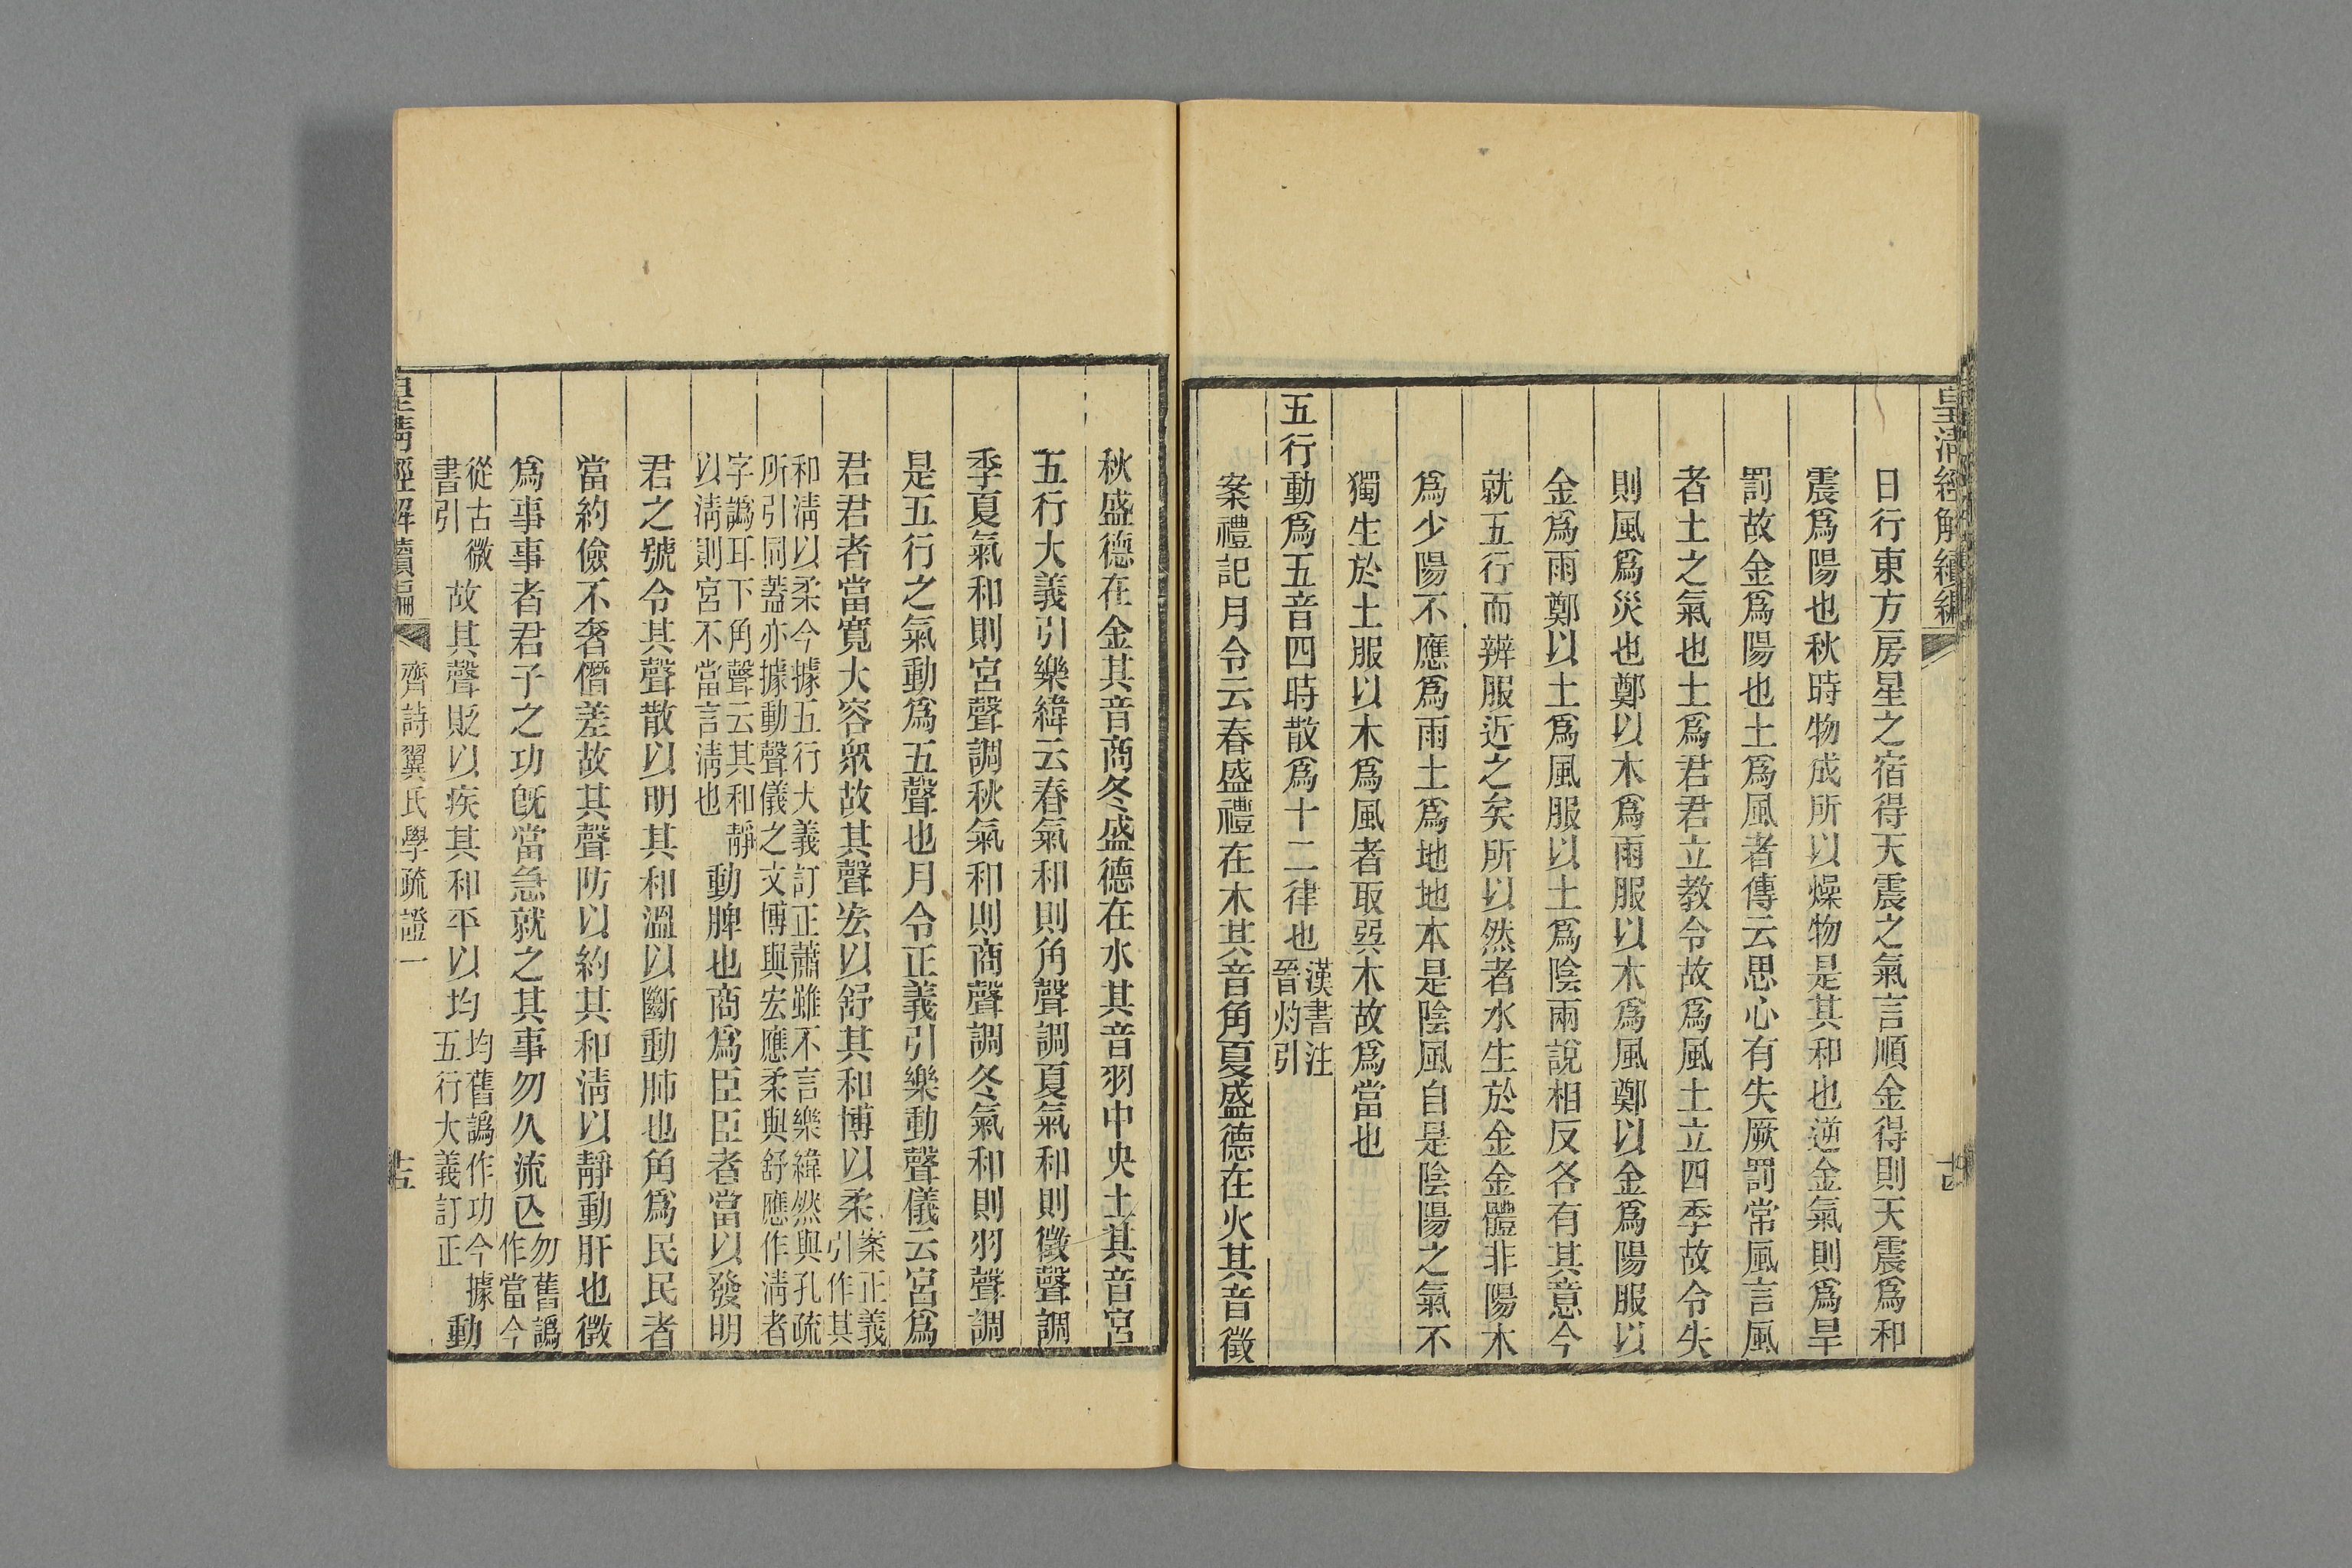 皇清經解續編
日行東方房星之宿得天震之氣言順金得則天震爲和
震爲陽也秋時物成所以燥物是其和也逆金氣則爲旱
罰故金爲陽也土爲風者傳云思心有失厥罰常風言風
者土之氣也土爲君君立教令故爲風土立四季故令失
則風爲災也鄭以木爲雨服以木爲風鄭以金爲陽服以
金爲雨鄭以土爲風服以土爲陰雨說相反各有其意今
就五行而辨服近之矣所以然者水生於金金體非陽木
爲少陽不應爲雨土爲地地本是陰風自是陰陽之氣不
獨生於土服以木爲風者取巽木故爲當也
五行動爲五音四時散爲十二律也漢書注晉灼引
案禮記月令云春盛禮在木其音角夏盛德在火其音徵
秋盛德在金其音商冬盛德在水其音羽中央土其音宮
五行大義引樂緯云春氣和則角聲調夏氣和則徵聲調
季夏氣和則宮聲調秋氣和則商聲調冬氣和則羽聲調
是五行之氣動爲五聲也月令正義引樂動聲儀云宮爲
君君者當寬大容眾故其聲宏以舒其和博以柔案正義引作其
和淸以柔今據五行大義訂正蕭雖不言樂緯然與孔疏
所引同蓋亦據動聲儀之文博與宏應柔與舒應作淸者
字譌耳下角聲云其和靜
以淸則宮不當言淸也動脾也商爲臣臣者當以發明
君之號令其聲散以明其和溫以斷動肺也角爲民民者
當約儉不奢僭差故其聲防以約其和淸以靜動肝也徵
爲事事者君子之功旣當急就之其事勿久流亾勿舊譌作當今
從古微書引故其聲貶以疾其和平以均均舊譌作功今據五行大義訂正動
皇淸經解續編
齊詩翼氏學疏證一